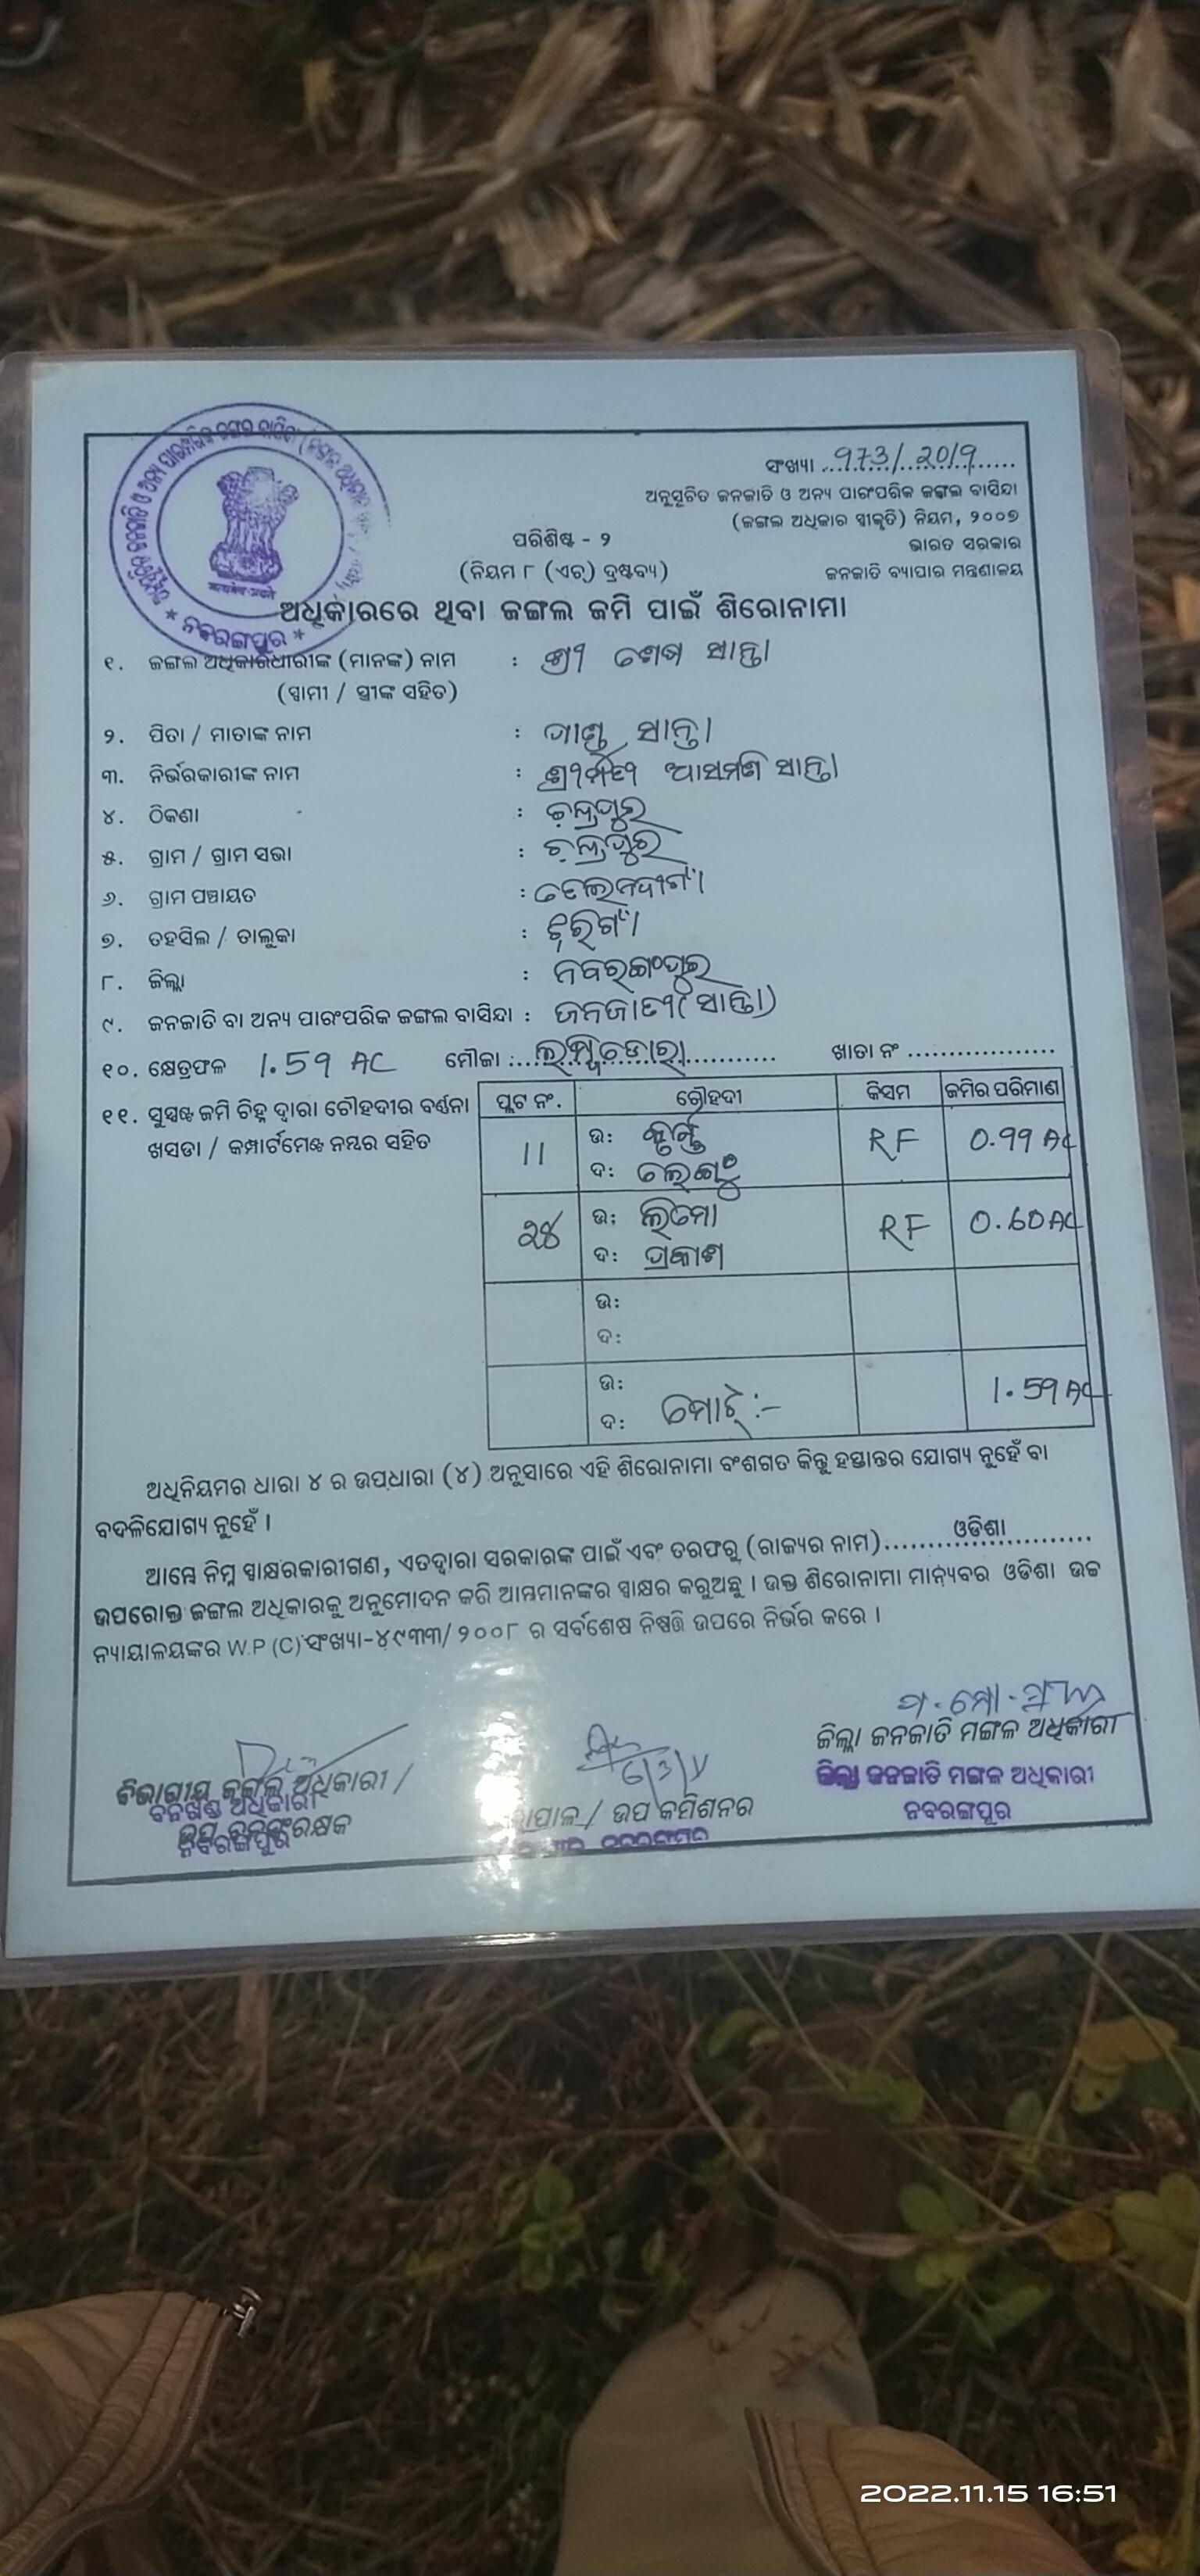 ସଂଖ୍ୟା 973/2019
ଅନୁସୂଚିତ ଜନଜାତି ଓ ଅନ୍ୟ ପାରଂପରିକ ଜଙ୍ଗଲ ବାସିନ୍ଦା
(ଜଙ୍ଗଲ ଅଧିକାର ସ୍ୱୀକୃତି) ନିୟମ, ୨୦୦୭
ଭାରତ ସରକାର
ଜନଜାତି ବ୍ୟାପାର ମନ୍ତ୍ରଣାଳୟ
ପରିଶିଷ୍ଟ - ୨
(ନିୟମ ୮ (ଏଚ୍) ଦ୍ରଷ୍ଟବ୍ୟ)
ଅଧିକାରରେ ଥିବା ଜଙ୍ଗଲ ଜମି ପାଇଁ ଶିରୋନାମା
୧. ଜଙ୍ଗଲ ଅଧିକାରଧାରୀଙ୍କ (ମାନଙ୍କ) ନାମ : ଶ୍ରୀ ଶେଷ ସାନ୍ତା
(ସ୍ୱାମୀ / ସ୍ତ୍ରୀଙ୍କ ସହିତ)
୨. ପିତା / ମାତାଙ୍କ ନାମ : ସାନ୍ତା
୩. ନିର୍ଭରକାରୀଙ୍କ ନାମ : ଶ୍ରୀମତୀ ଆସମଣି ସାନ୍ତା
୪. ଠିକଣା : ଚନ୍ଦ୍ରପୁର
୫. ଗ୍ରାମ / ଗ୍ରାମ ସଭା : ଚନ୍ଦ୍ରପୁର
୬. ଗ୍ରାମ ପଞ୍ଚାୟତ :
୭. ତହସିଲ / ତାଲୁକା : ଝରିଗାଁ
୮. ଜିଲ୍ଲା : ନବରଙ୍ଗପୁର
୯. ଜନଜାତି ବା ଅନ୍ୟ ପାରଂପରିକ ଜଙ୍ଗଲ ବାସିନ୍ଦା : ଜନଜାତୀ (ସାନ୍ତା)
୧୦. କ୍ଷେତ୍ରଫଳ 1.59 AC ମୌଜା : ଖାତା ନଂ
୧୧. ସୁସ୍ପଷ୍ଟ ଜମି ଚିହ୍ନ ଦ୍ୱାରା ଚୌହଦୀର ବର୍ଣ୍ଣନା
ଖସଡା / କମ୍ପାର୍ଟମେଣ୍ଟ ନମ୍ବର ସହିତ
ପ୍ଲଟ ନଂ. ଚୌହଦୀ କିସମ ଜମିର ପରିମାଣ
11 ଉ: RF 0.99 AC
ଦ:
28 ଉ: RF 0.60 AC
ଦ: ପ୍ରକାଶ
ଉ:
ଦ:
ଉ: 1.59 AC
ଦ: ମୋଟ୍ :-
ଅଧିନିୟମର ଧାରା ୪ ର ଉପଧାରା (୪) ଅନୁସାରେ ଏହି ଶିରୋନାମା ବଂଶଗତ କିନ୍ତୁ ହସ୍ତାନ୍ତର ଯୋଗ୍ୟ ନୁହେଁ ବା
ବଦଳିଯୋଗ୍ୟ ନୁହେଁ ।
ଆମ୍ଭେ ନିମ୍ନ ସ୍ୱାକ୍ଷରକାରୀଗଣ, ଏତଦ୍ୱାରା ସରକାରଙ୍କ ପାଇଁ ଏବଂ ତରଫରୁ (ରାଜ୍ୟର ନାମ) ଓଡିଶା
ଉପରୋକ୍ତ ଜଙ୍ଗଲ ଅଧିକାରକୁ ଅନୁମୋଦନ କରି ଆମ୍ଭମାନଙ୍କର ସ୍ୱାକ୍ଷର କରୁଅଛୁ । ଉକ୍ତ ଶିରୋନାମା ମାନ୍ୟବର ଓଡିଶା ଉଚ୍ଚ
ନ୍ୟାୟାଳୟଙ୍କର W.P (C) ସଂଖ୍ୟା-୪୯୩୩/୨୦୦୮ ର ସର୍ବଶେଷ ନିଷ୍ପତ୍ତି ଉପରେ ନିର୍ଭର କରେ ।
ବିଭାଗୀୟ ଜଙ୍ଗଲ ଅଧିକାରୀ /
ବନଖଣ୍ଡ ଅଧିକାରୀ
ଉପ ବନସଂରକ୍ଷକ
ନବରଙ୍ଗପୁର
ଜିଲ୍ଲାପାଳ / ଉପ କମିଶନର
ଜିଲ୍ଲା ଜନଜାତି ମଙ୍ଗଳ ଅଧିକାରୀ
ଜିଲ୍ଲା ଜନଜାତି ମଙ୍ଗଳ ଅଧିକାରୀ
ନବରଙ୍ଗପୁର
2022.11.15 16:51